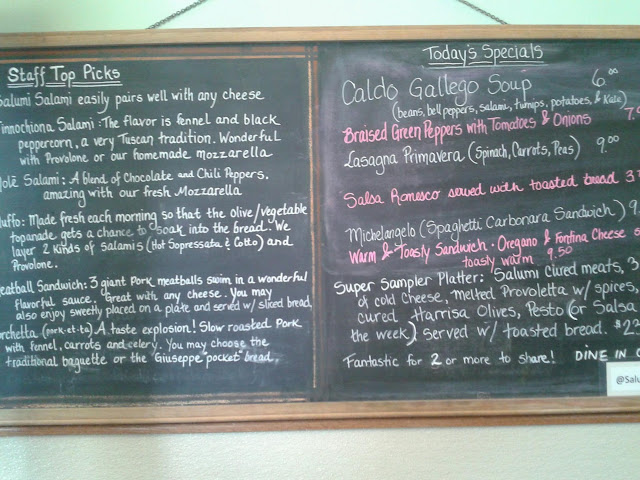 Staff Top Picks
Salumi Salami easily pairs well with any cheese
Finnochiona Salami: The flavor is fennel and black
peppercorn, a very Tuscan tradition. Wonderful
with Provolone or our homemade mozzarella
Molé Salami: A blend of Chocolate and Chili Peppers.
amazing with our fresh Mozzarella
Muffo: Made fresh each morning so that the olive/vegetable
topanade gets a chance to soak into the bread. We
layer 2 kinds of salamis (Hot Sopressata & Cotto) and
Provolone.
Meatball Sandwich: 3 giant Pork meatballs swim in a wonderful
flavorful sauce. Great with any cheese. You may
also enjoy sweetly placed on a plate and served w/ sliced bread,
Porchetta (pork-et-ta) A taste explosion! Slow roasted Pork
with fennel, carrots and celery. You may choose the
traditional baguette or the "Giuseppe "pocket" bread.
Today's Specials
Caldo Gallego Soup 6.00
(beans, bell peppers, salami, turnips, potatoes, & Kale)
Braised Green Peppers with Tomatoes & Onions 7.
Lasagna Primavera (Spinach, Carrots, Peas) 9.00
Salsa Romesco served with toasted bread 3
Michelangelo (Spaghetti Carbonara Sandwich) 9.
Warm & Toasty Sandwich - Oregano & Fontina Cheese
toasty warm 9.50
Super Sampler Platter: Salumi cured meats, 3
of cold cheese, melted Provoletta w/ spices,
cured Harrisa Olives, Pesto (or Salsa
the week) served w/ toasted bread. $2
Fantastic for 2 or more to share! DINE IN
@Salu